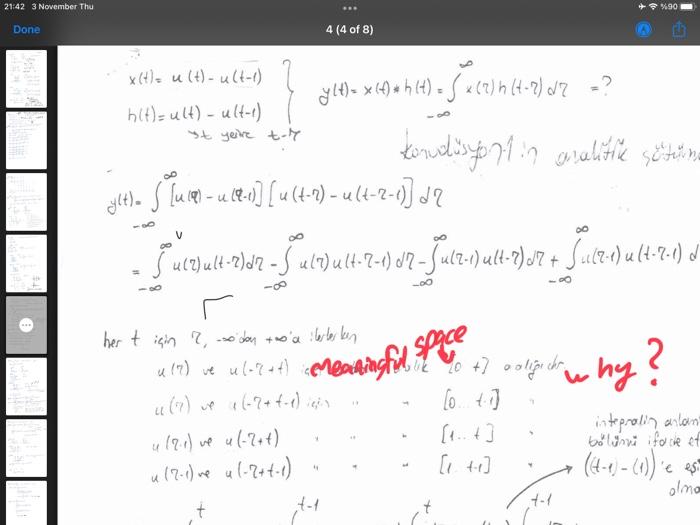 21:42 3 November Thu
%90
Done
4 (4 of 8)
x(t) = u(t) - u(t-1)
h(t) = u(t) - u(t-1)
y(t) = x(t) * h(t) = ∫_{-∞}^{∞} x(τ) h(t-τ) dτ = ?
t yerine t-τ
analitik
y(t) = ∫_{-∞}^{∞} [u(τ) - u(τ-1)] [u(t-τ) - u(t-τ-1)] dτ
= ∫_{-∞}^{∞} u(τ) u(t-τ) dτ - ∫_{-∞}^{∞} u(τ) u(t-τ-1) dτ - ∫_{-∞}^{∞} u(τ-1) u(t-τ) dτ + ∫_{-∞}^{∞} u(τ-1) u(t-τ-1) d
her t için τ, -∞'dan +∞'a ilerlerken
meaningful space
why?
u(τ) ve u(-τ+t) [0 t] aralığıdır
u(τ) ve u(-τ+t-1) için " " [0... t-1] "
u(τ-1) ve u(-τ+t) " " " [1... t] "
u(τ-1) ve u(-τ+t-1) " " " [1. t-1] "
integralin anlam
bölümü ifade et
((t-1) - (1))'e eşi
olma
t t-1 t t-1